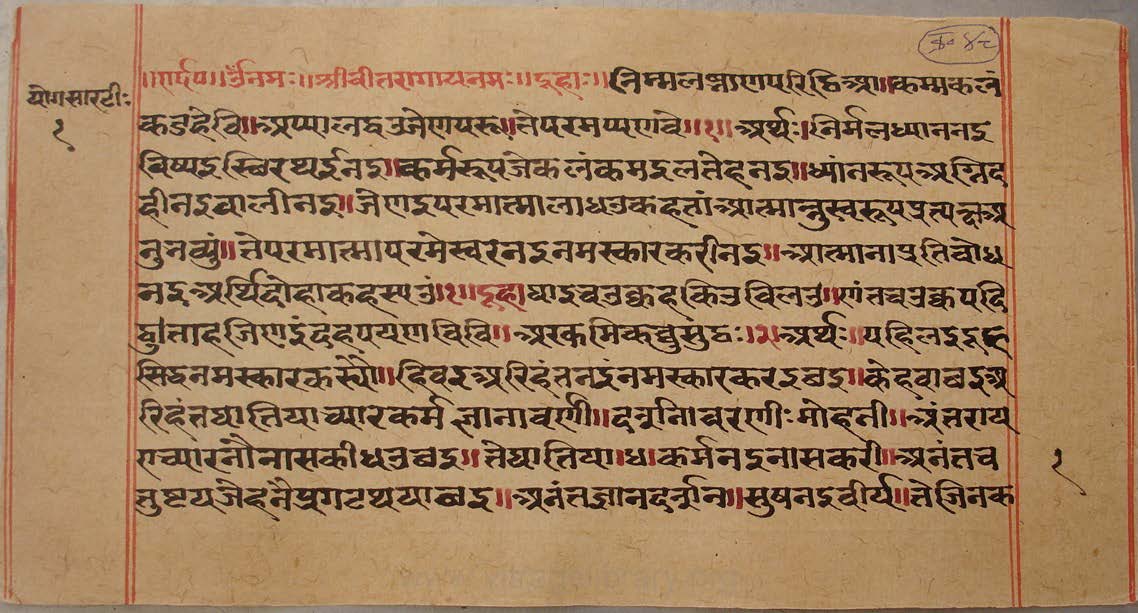 क॰ ४८
॥ॐ नमः॥श्रीवीतरागायनमः॥दूहाः॥निम्मलझाणपरिट्ठिआ॥कम्मकलं
योगसारटीः
१
कडहेवि॥अप्पालद्धउजेणपरू॥तेपरमप्पणवे॥१॥अर्थः॥निर्मलध्याननइ
विष्यइस्थिरथईनइ॥कर्मरूपजेकलंकमइलतेहनइ॥ध्यांनरूपअग्निद
हीनइबालीनइ॥जेणइपरमात्मालाधउकहतांआत्मानुस्वरूपप्रत्यक्षअ
नुभव्युं॥तेपरमात्मापरमेस्वरनइनमस्कारकरीनइ॥आत्मानाप्रतिबोध
नइअर्थिदोहाकहस्यउं॥१॥दूहा॥घाइचउक्कहकिउविलउ॥णंतचउक्कपदि
ट्ठु॥ताहजिणइंदहपयणविवि॥अरकमिकव्वुसुइट्ठः॥२॥अर्थः॥पहिलइदूह
सिद्धनमस्कारकर्स्यौ॥हिवइअरिहंतनइंनमस्कारकरइछइ॥केहवाछइअ
रिहंतघातियाच्यारकर्मज्ञानावर्णी॥दर्शनावरणीःमोहनी॥अंतराय
एच्यारनौनासकीधउछइ॥तेघातिया॥४॥कर्मनइनासकरी॥अनंतच
तुष्टयजेहनैप्रगटथयाछइ॥अनंतज्ञानदर्शन॥सुषनइवीर्य॥तेजिनक
१